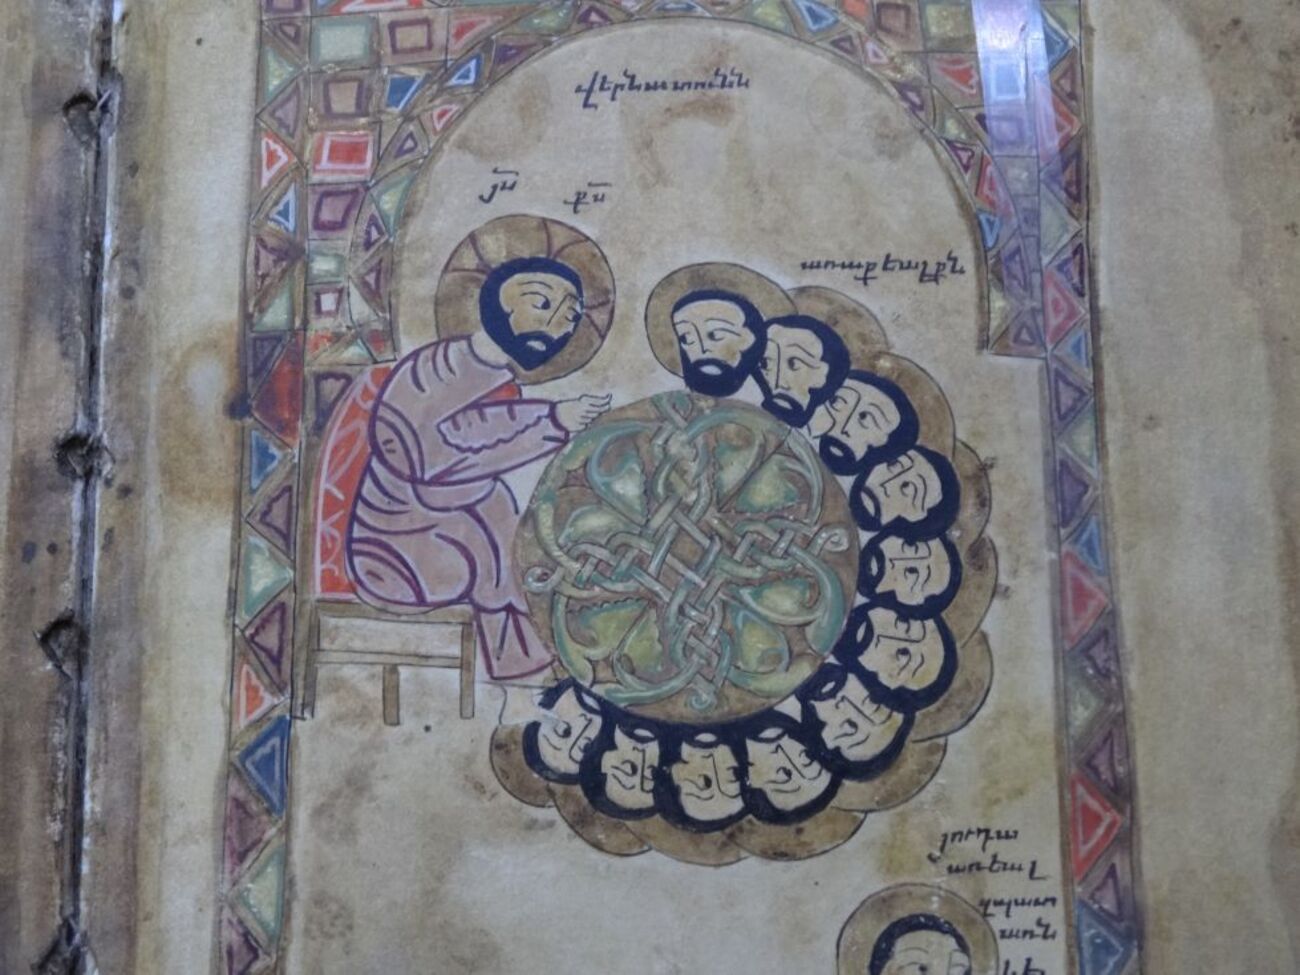 վերնատունն
յս̅ քս̅
առաքեալքն
յուդա
առեալ
զպատ
առն